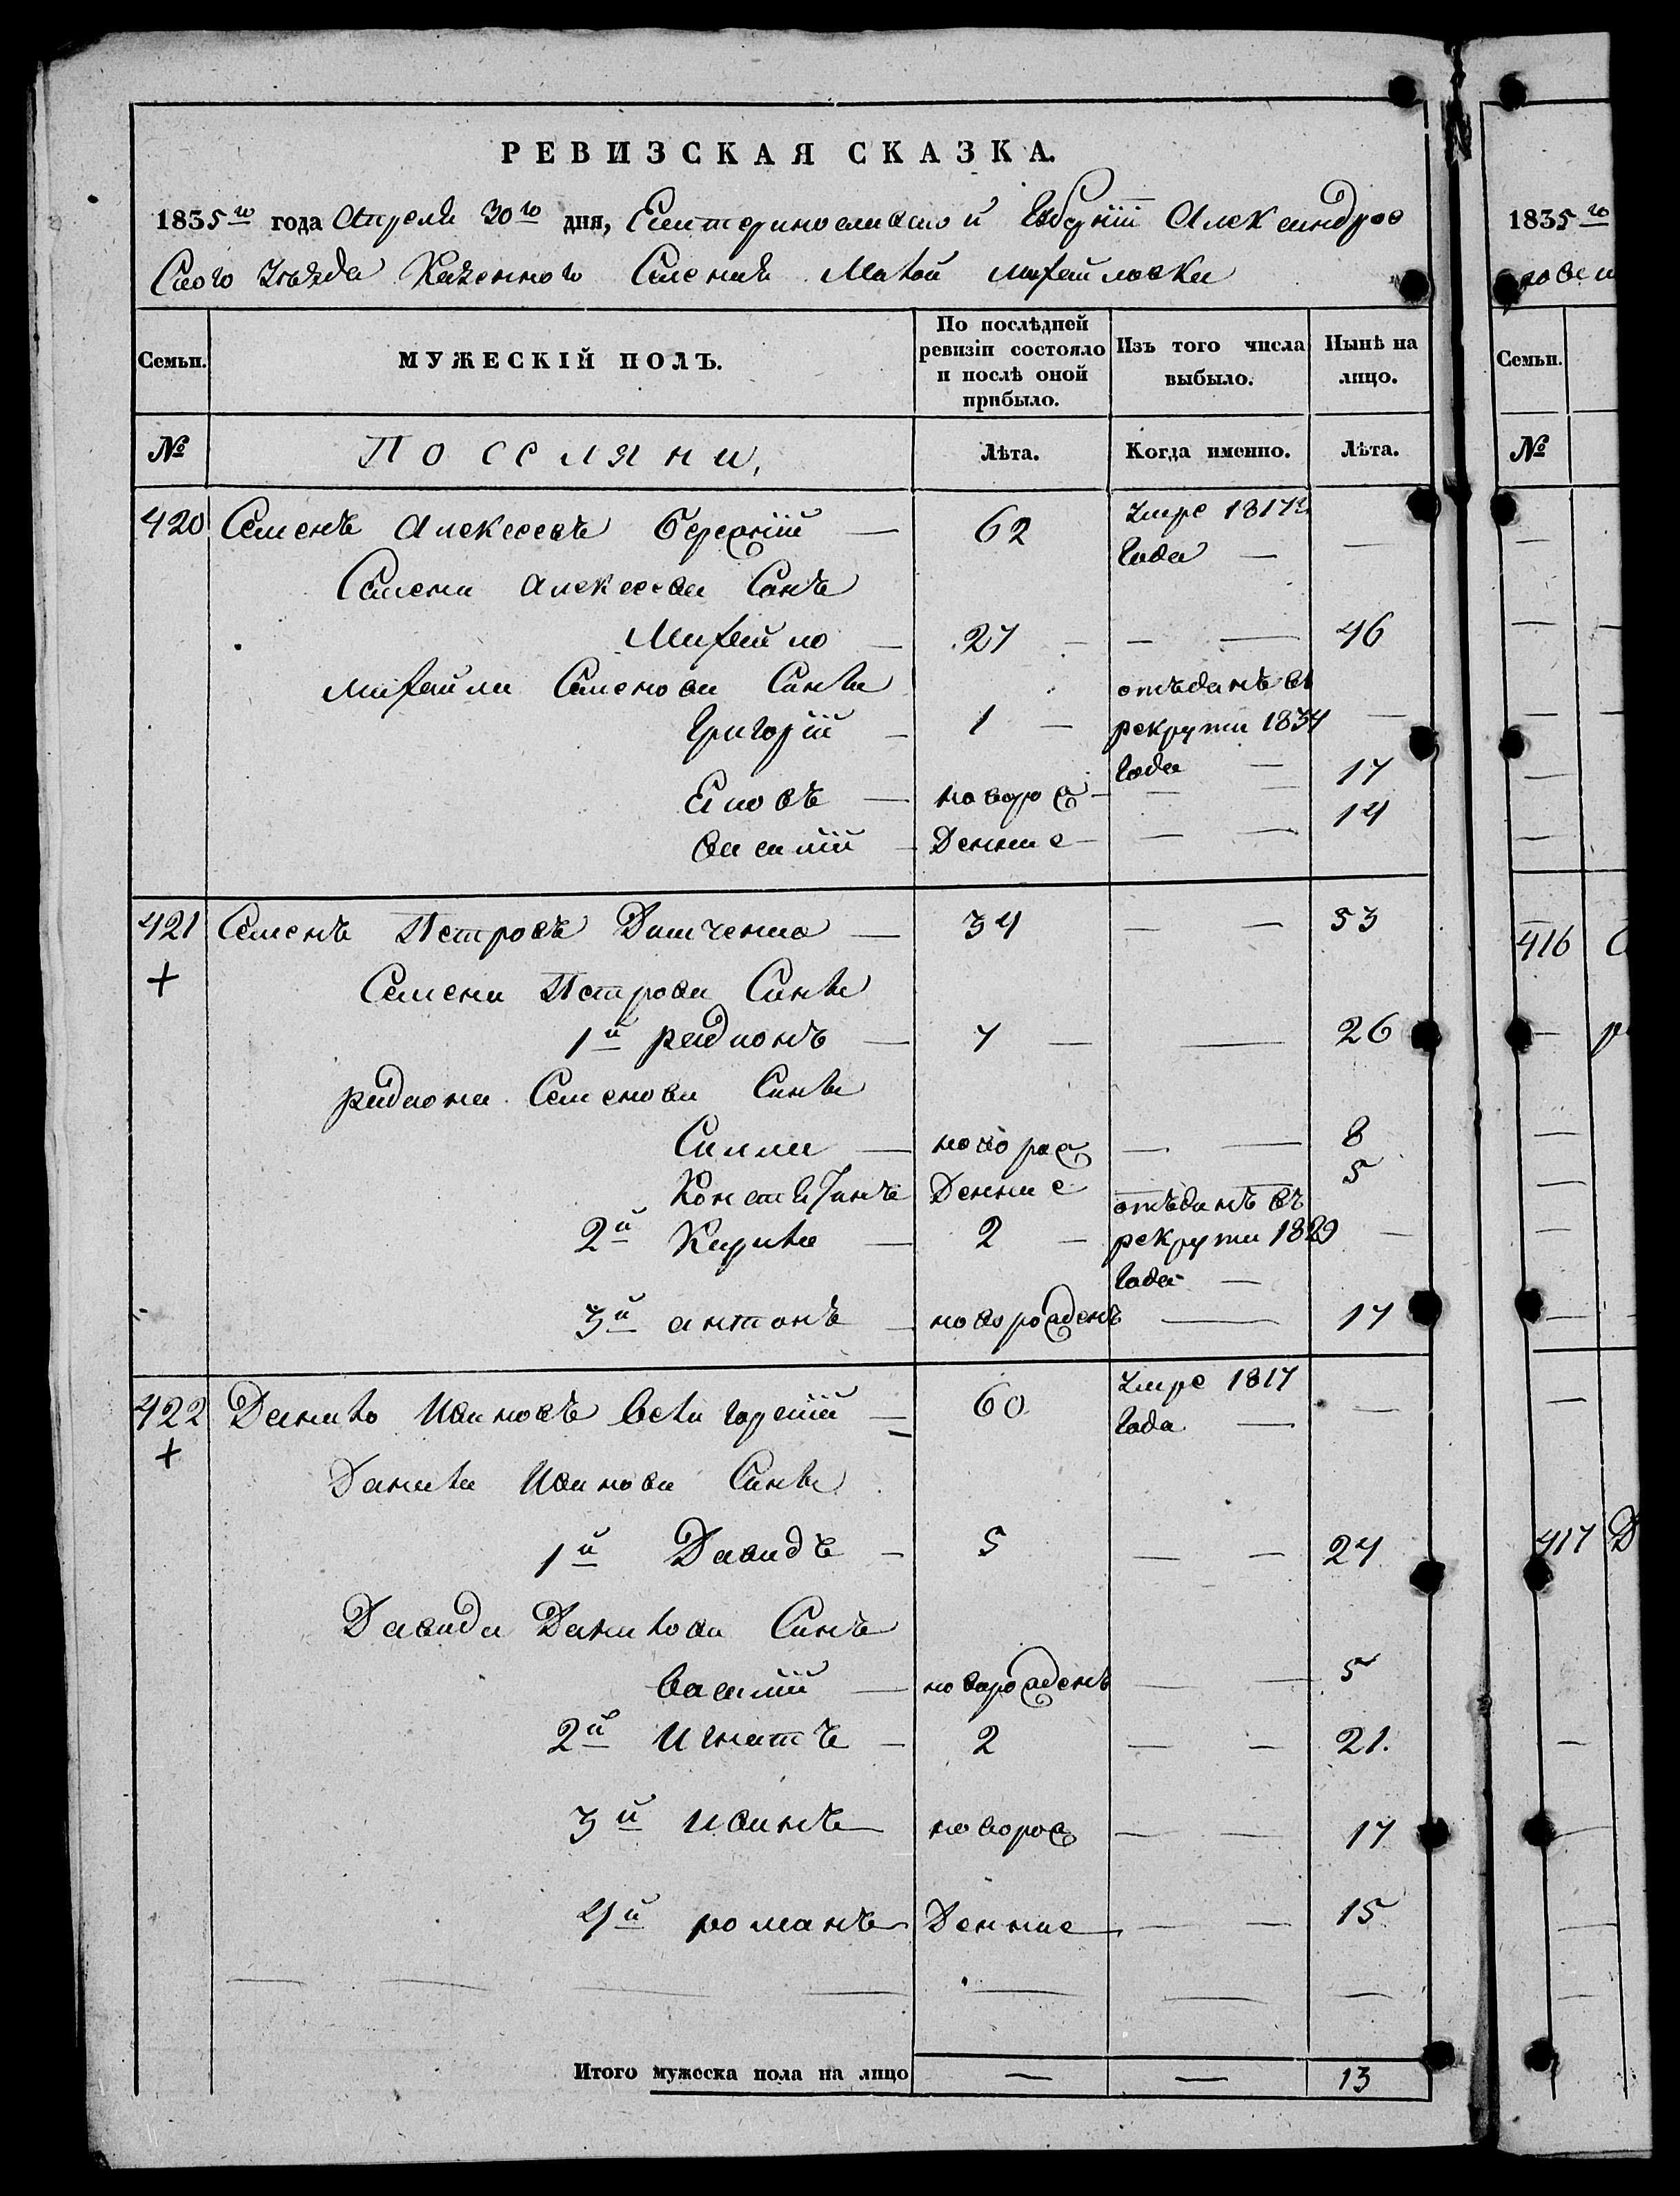 РЕВИЗСКАЯ СКАЗКА.
1835го года Апреля 30го дня, Екатеринославской Губерніи Александров
Ского Уѣзда Казенного Селенія Малой Михайловки
Семьи. МУЖЕСКІЙ ПОЛЪ. По послѣдней ревизіи состояло и послѣ оной прибыло. Изъ того числа выбыло. Нынѣ на лицо.
№ Поселяни, Лѣта. Когда именно. Лѣта.
420 Семенъ Алексеевъ — 62 Умре 1817го Года — —
Семена Алексеева Синъ
Михайло — 27 — — — 46
Михайли Семенова Синъи
Григорій — 1 — отъданъ въ рекрути 1834 Года — —
Яковъ — новорож — — — 17
Василій — Денние — — — 14
421 Семенъ Петровъ — 34 — — 53
+
Семена Петрова Сини
1й радионъ — 7 — — 26
радиона Семенова Сини
Савва — новорож — — 8
Константинъ Денние — — 5
2й Кирила — 2 — отъданъ въ рекрути 1829 Года — —
3й антонъ — новорожденъ — 17
422 Данило Ивановъ Белигорский — 60 Умре 1817 Года — —
+
Данила Иванова Сини
1й Давидъ — 5 — — 24
Давида Данилова Синъ
Василій — новорожденъ — — 5
2й Игнатъ — 2 — — 21.
3й иванъ — новорож — — 17
4й романъ Денние — — 15
Итого мужеска пола на лицо — — 13
1835го
Семьи.
№
416
417 Д